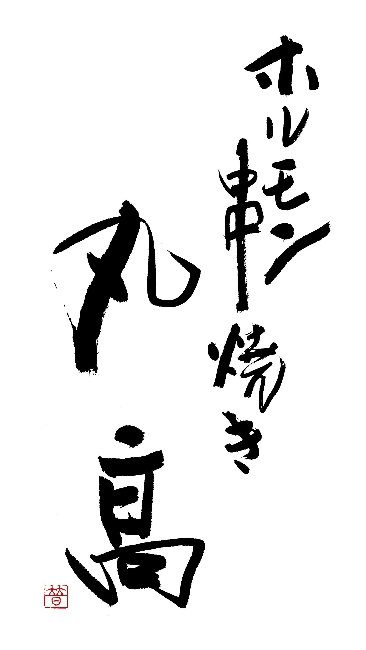 ホルモン
串焼き
丸高